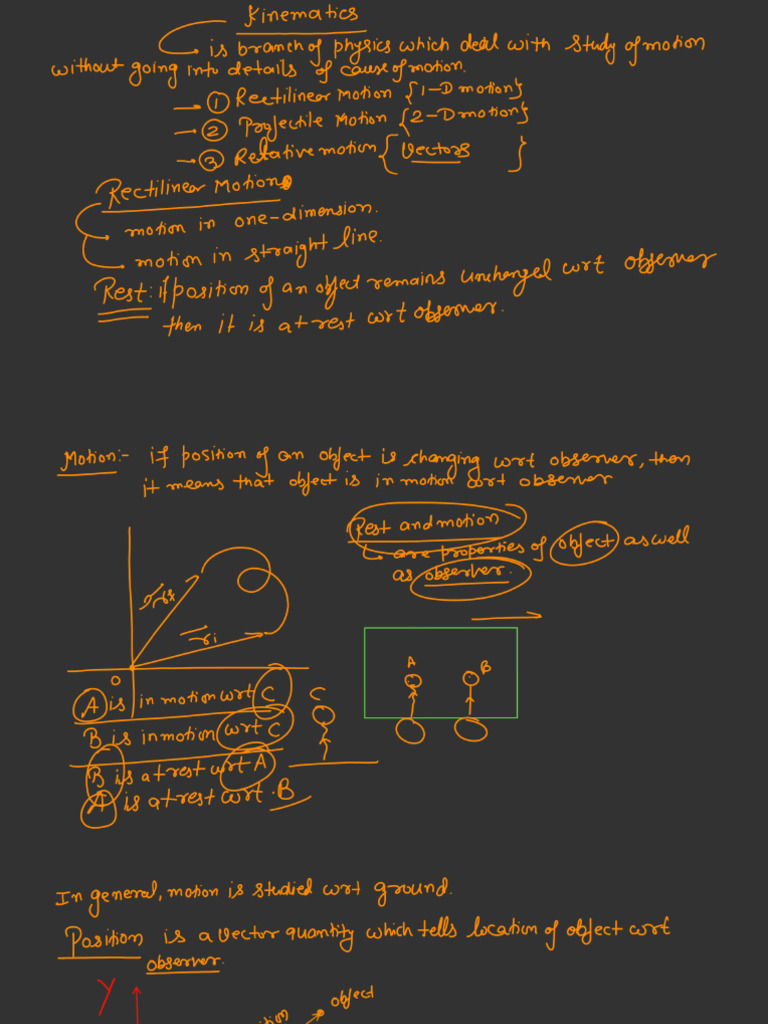 Kinematics
is branch of physics which deal with study of motion
without going into details of cause of motion.
→ ① Rectilinear Motion {1-D motion}
→ ② Projectile Motion {2-D motion}
→ ③ Relative motion { Vectors }
Rectilinear Motion
motion in one-dimension.
motion in straight line.
Rest: if position of an object remains unchanged wrt observer
then it is at rest wrt observer.
Motion:- if position of an object is changing wrt observer, then
it means that object is in motion wrt observer
Rest and motion
are properties of object as well
as observer.
ri
O
A
B
C
A is in motion wrt C
B is in motion wrt C
B is at rest wrt A
A is at rest wrt B
In general, motion is studied wrt ground.
Position is a vector quantity which tells location of object wrt
observer.
Y
object